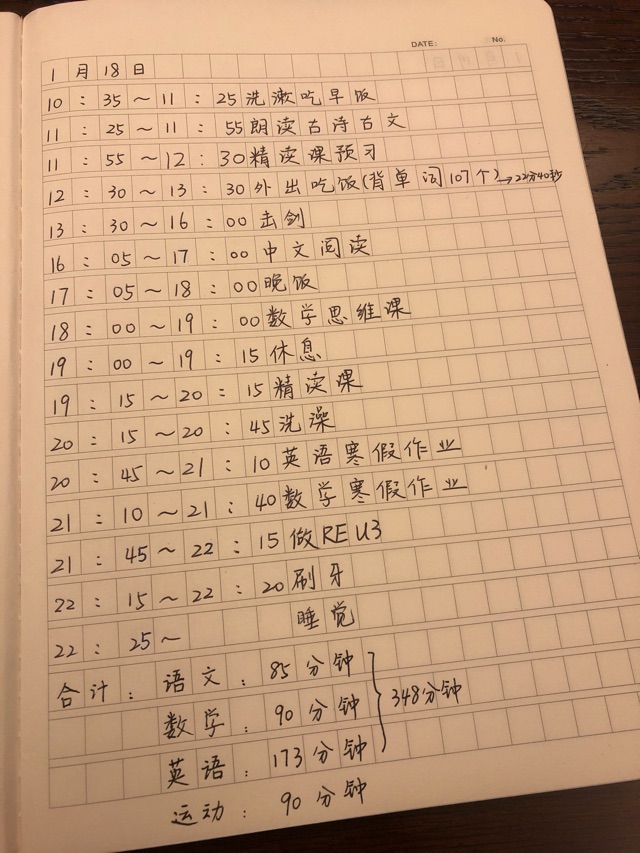 DATE: No.
1月18日
10:35～11:25洗漱吃早饭
11:25～11:55朗读古诗古文
11:55～12:30精读课预习
12:30～13:30外出吃饭(背单词107个)→22分40秒
13:30～16:00击剑
16:05～17:00中文阅读
17:05～18:00晚饭
18:00～19:00数学思维课
19:00～19:15休息
19:15～20:15精读课
20:15～20:45洗澡
20:45～21:10英语寒假作业
21:10～21:40数学寒假作业
21:45～22:15做RE U3
22:15～22:20刷牙
22:25～ 睡觉
合计:语文:85分钟
数学:90分钟 348分钟
英语:173分钟
运动:90分钟